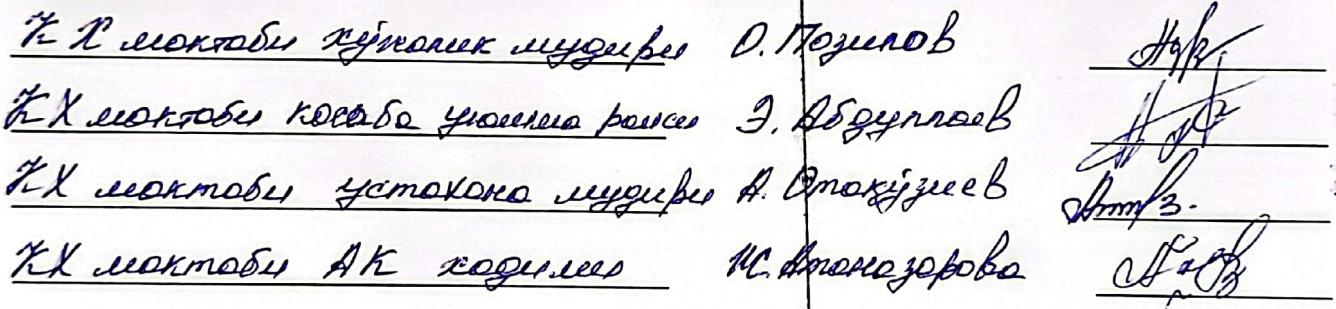 КХ мактаби хўжалик мудири О. Позилов
КХ мактаби касаба уюшма раиси Э. Абдуллаев
КХ мактаби устахона мудири А. Отакўзиев
КХ мактаби АК ходими Ж. Атаназарова